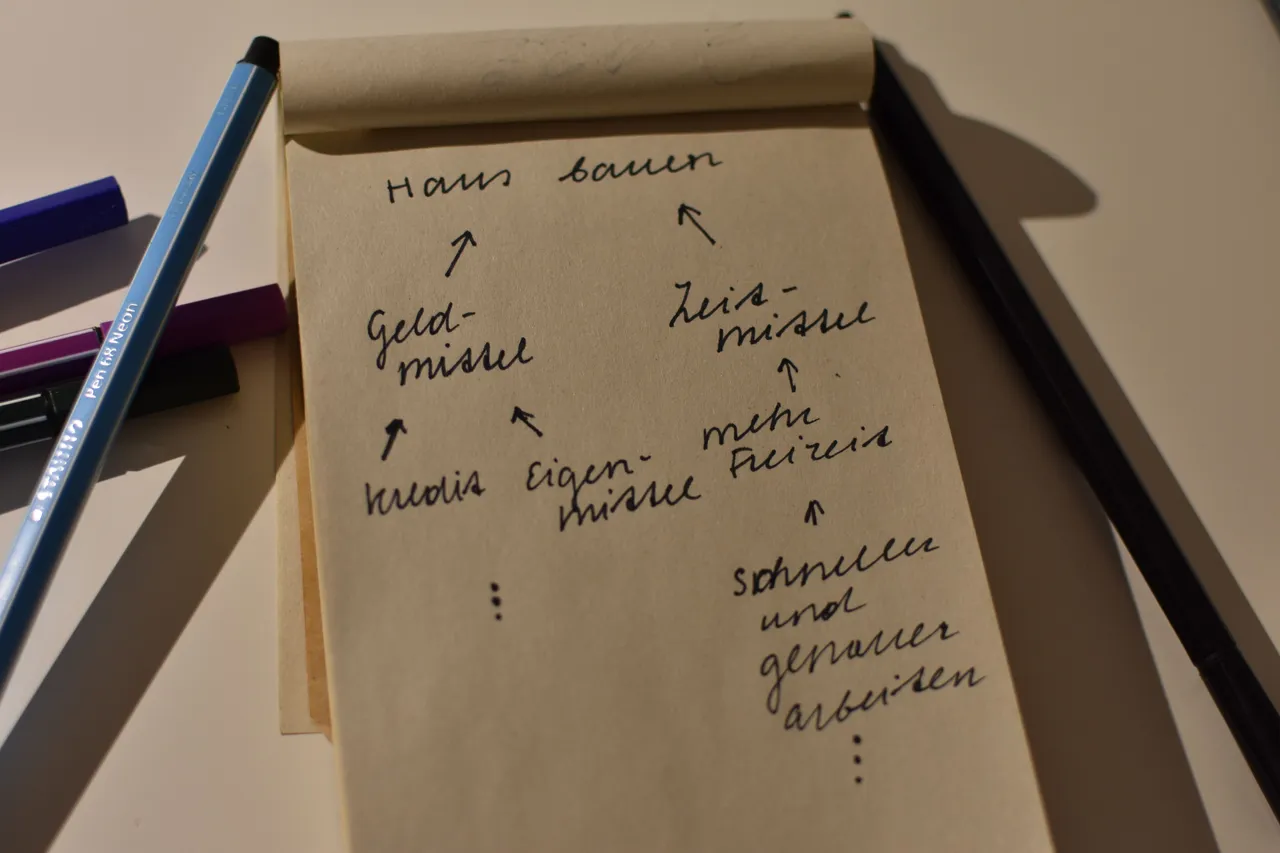 Haus bauen
Geld-
mittel
Zeit-
mittel
Kredit
Eigen-
mittel
mehr
Freizeit
schneller
und
genauer
arbeiten
STABILO Pen 68 Neon